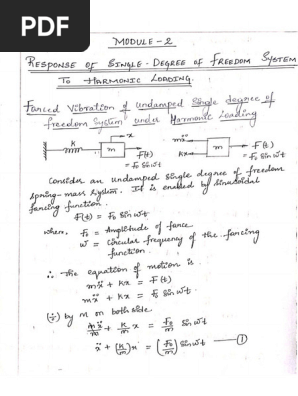 PDF
MODULE-2
RESPONSE OF SINGLE-DEGREE OF FREEDOM SYSTEM
TO HARMONIC LOADING.
Forced Vibration of undamped Single degree of
freedom System under Harmonic Loading
k m x F(t) mẍ kx m F(t)
= F₀ Sin ω̄t = F₀ Sin ω̄t
Consider an undamped single degree of freedom
spring-mass System. It is enabled by sinusoidal
forcing function.
F(t) = F₀ Sin ω̄t
where, F₀ = Amplitude of force
ω̄ = Circular frequency of the forcing
function.
∴ the equation of motion is
mẍ + kx = F(t)
mẍ + kx = F₀ Sin ω̄t
(÷) by m on both side
mẍ/m + k/m x = F₀/m Sin ω̄t
ẍ + (k/m)x = (F₀/m) Sin ω̄t — ①